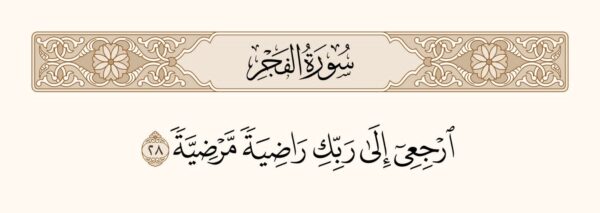 سُورَةُ الفَجْرِ
ٱرْجِعِىٓ إِلَىٰ رَبِّكِ رَاضِيَةً مَّرْضِيَّةً ٢٨